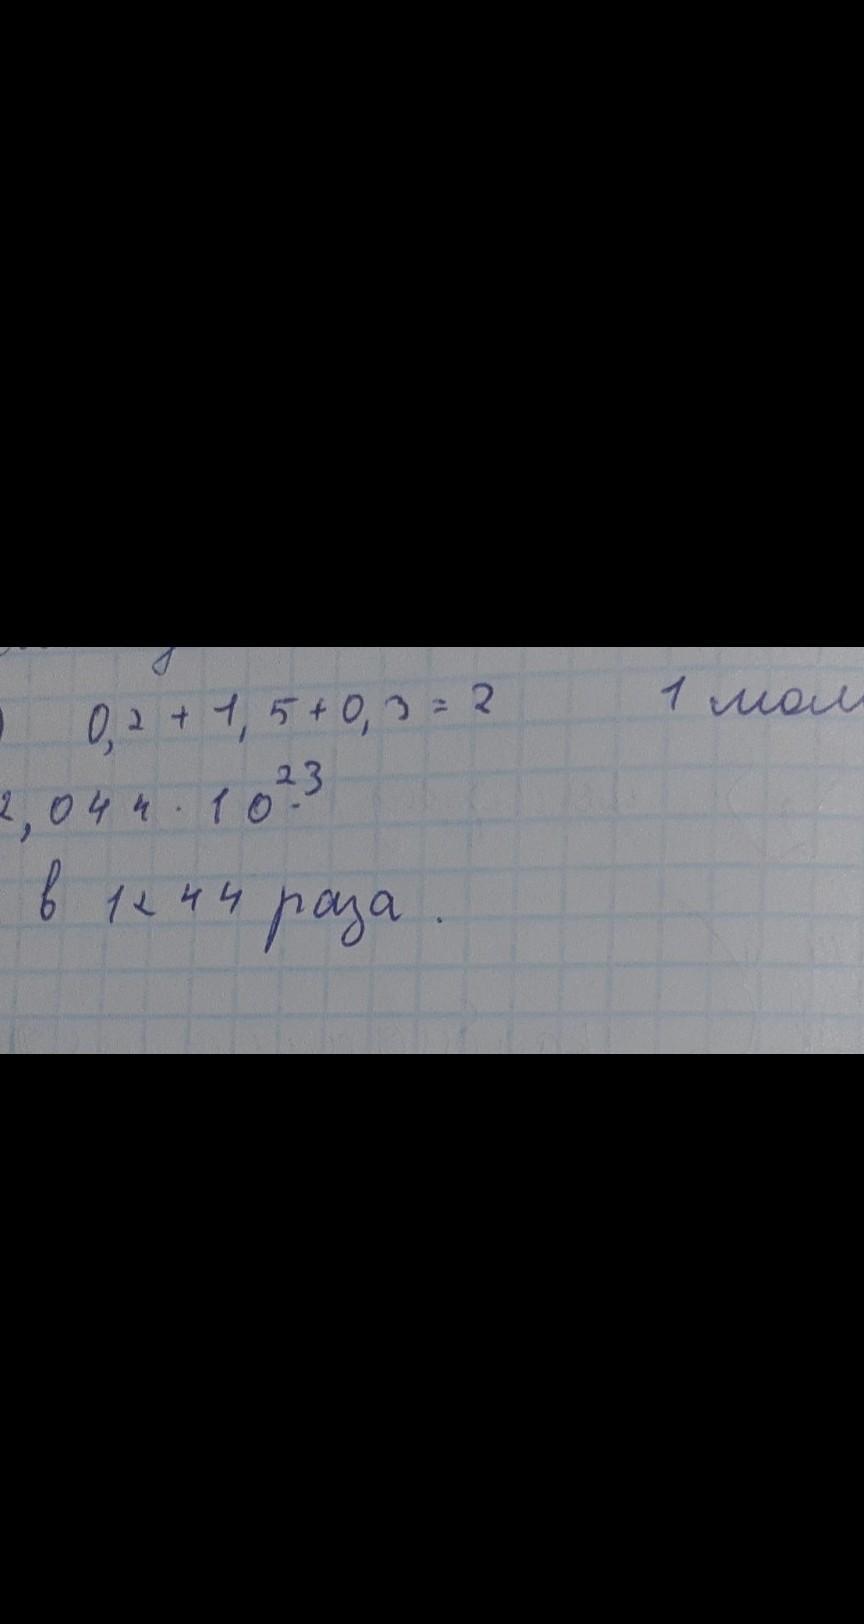 ) 0,2 + 1,5 + 0,3 = 2 1 мол
2,044 · 10²³
в 1,44 раза.